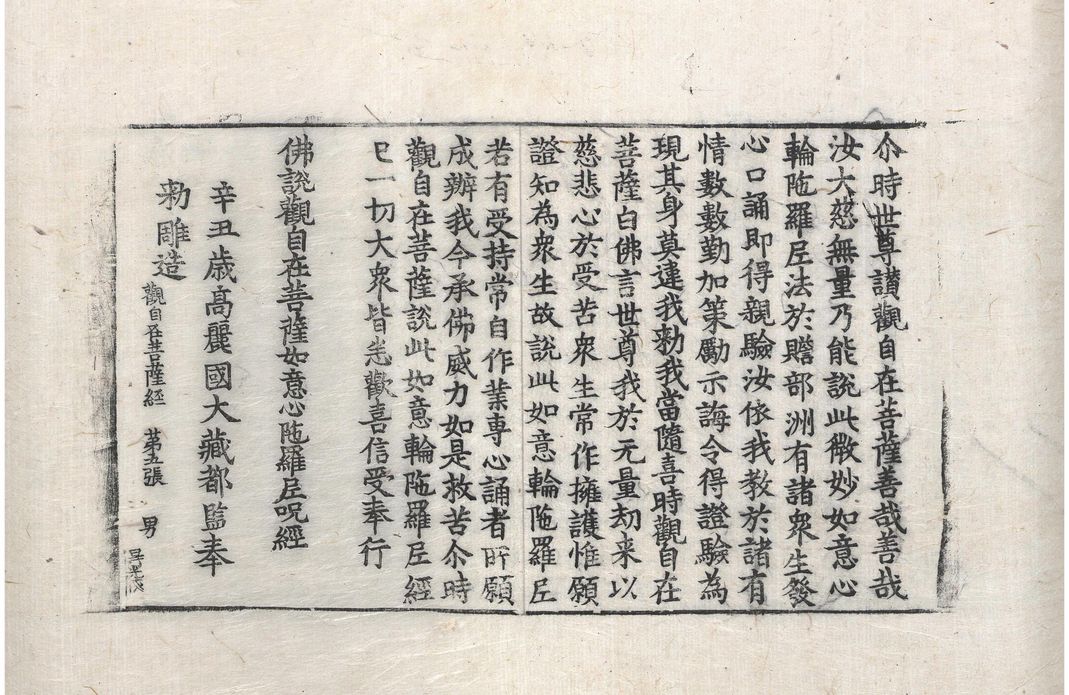 尒時世尊讃觀自在菩薩善哉善哉
汝大慈無量乃能說此微妙如意心
輪陁羅尼法於贍部洲有諸衆生發
心口誦即得親驗汝依我教於諸有
情數數勤加策勵示誨令得證驗為
現其身莫違我勑我當隨喜時觀自在
菩薩白佛言世尊我於无量劫来以
慈悲心於受苦衆生常作擁護惟願
證知為衆生故說此如意輪陁羅尼
若有受持常自作業專心誦者所願
成辦我今承佛威力如是救苦尒時
觀自在菩薩說此如意輪陁羅尼經
已一切大衆皆悉歡喜信受奉行
佛說觀自在菩薩如意心陁羅尼呪經
辛丑歳高麗國大藏都監奉
勑雕造
觀自在菩薩經 第五張 男